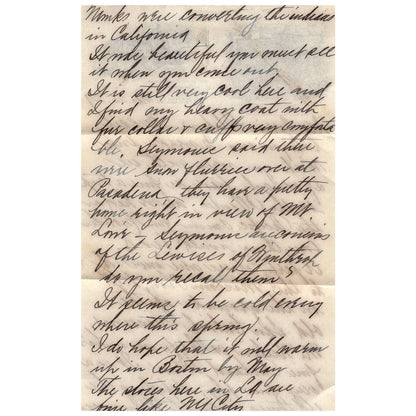 Monks were converting the indians
in California
It was beautiful you must see
it when you come out
It is still very cool here and
I find my heavy coat with
fur collar & cuffs very comforta
ble. Seymours said there
were snow flurries over at
Pasadena they have a pretty
home right in view of Mt.
Lowe – Seymours are cousins
of the Lewises of
do you recall them?
It seems to be cold every
where this spring.
I do hope that it will warm
up in Boston by May
The stores here in LA are
fine like NY City